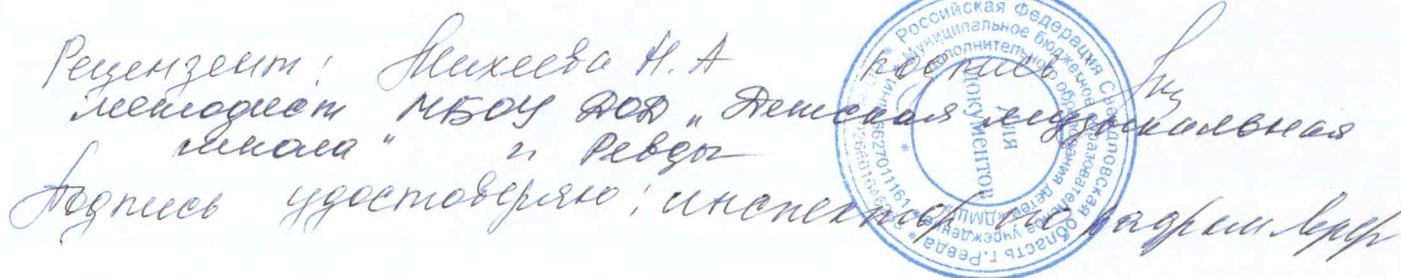 Рецензент: Михеева Н. А подпись
методист МБОУ ДОД „Детская музыкальная
школа" г Ревды
Подпись удостоверяю: инспектор по кадрам
Российская Федерация Свердловская область г.Ревда
Муниципальное бюджетное образовательное учреждение
дополнительного образования детей
для
документов